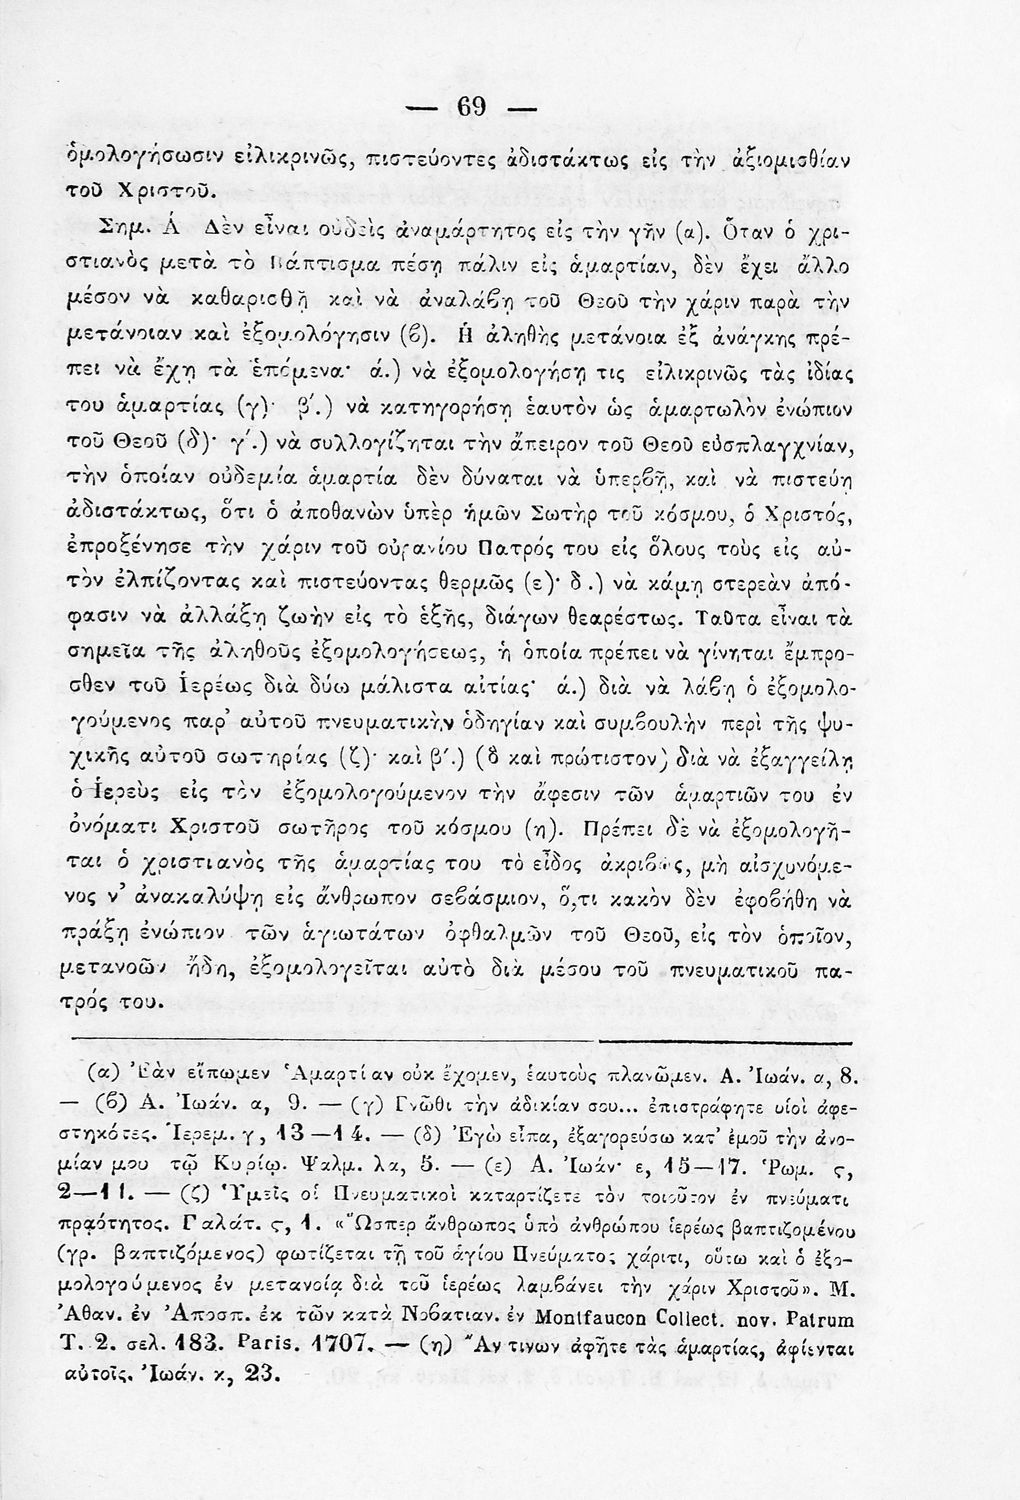 — 69 —
ὁμολογήσωσιν εἰλικρινῶς, πιστεύοντες ἀδιστάκτως εἰς τὴν ἀξιομισθίαν
τοῦ Χριστοῦ.
Σημ. Ά Δὲν εἶναι οὐδεὶς ἀναμάρτητος εἰς τὴν γῆν (α). Ὅταν ὁ χρι-
στιανὸς μετὰ τὸ Βάπτισμα πέσῃ πάλιν εἰς ἁμαρτίαν, δὲν ἔχει ἄλλο
μέσον νὰ καθαρισθῇ καὶ νὰ ἀναλάβῃ τοῦ Θεοῦ τὴν χάριν παρὰ τὴν
μετάνοιαν καὶ ἐξομολόγησιν (β). Ἡ ἀληθὴς μετάνοια ἐξ ἀνάγκης πρέ-
πει νὰ ἔχῃ τὰ ἑπόμενα· ά.) νὰ ἐξομολογήσῃ τις εἰλικρινῶς τὰς ἰδίας
του ἁμαρτίας (γ)· β΄.) νὰ κατηγορήσῃ ἑαυτὸν ὡς ἁμαρτωλὸν ἐνώπιον
τοῦ Θεοῦ (δ)· γ΄.) νὰ συλλογίζηται τὴν ἄπειρον τοῦ Θεοῦ εὐσπλαγχνίαν,
τὴν ὁποίαν οὐδεμία ἁμαρτία δὲν δύναται νὰ ὑπερβῇ, καὶ νὰ πιστεύῃ
ἀδιστάκτως, ὅτι ὁ ἀποθανὼν ὑπὲρ ἡμῶν Σωτὴρ τοῦ κόσμου, ὁ Χριστός,
ἐπροξένησε τὴν χάριν τοῦ οὐρανίου Πατρός του εἰς ὅλους τοὺς εἰς αὐ-
τὸν ἐλπίζοντας καὶ πιστεύοντας θερμῶς (ε)· δ.) νὰ κάμῃ στερεὰν ἀπό-
φασιν νὰ ἀλλάξῃ ζωὴν εἰς τὸ ἑξῆς, διάγων θεαρέστως. Ταῦτα εἶναι τὰ
σημεῖα τῆς ἀληθοῦς ἐξομολογήσεως, ἡ ὁποία πρέπει νὰ γίνηται ἔμπρο-
σθεν τοῦ ἱερέως διὰ δύω μάλιστα αἰτίας· ά.) διὰ νὰ λάβῃ ὁ ἐξομολο-
γούμενος παρ' αὐτοῦ πνευματικὴν ὁδηγίαν καὶ συμβουλὴν περὶ τῆς ψυ-
χικῆς αὐτοῦ σωτηρίας (ζ)· καὶ β΄.) (ὃ καὶ πρώτιστον) διὰ νὰ ἐξαγγείλῃ
ὁ Ἱερεὺς εἰς τὸν ἐξομολογούμενον τὴν ἄφεσιν τῶν ἁμαρτιῶν του ἐν
ὀνόματι Χριστοῦ σωτῆρος τοῦ κόσμου (η). Πρέπει δὲ νὰ ἐξομολογῆ-
ται ὁ χριστιανὸς τῆς ἁμαρτίας του τὸ εἶδος ἀκριβῶς, μὴ αἰσχυνόμε-
νος ν' ἀνακαλύψῃ εἰς ἄνθρωπον σεβάσμιον, ὅ,τι κακὸν δὲν ἐφοβήθη νὰ
πράξῃ ἐνώπιον τῶν ἁγιωτάτων ὀφθαλμῶν τοῦ Θεοῦ, εἰς τὸν ὁποῖον,
μετανοῶν ἤδη, ἐξομολογεῖται αὐτὸ διὰ μέσου τοῦ πνευματικοῦ πα-
τρός του.
(α) Ἐὰν εἴπωμεν Ἁμαρτίαν οὐκ ἔχομεν, ἑαυτοὺς πλανῶμεν. Α. Ἰωάν. α, 8.
— (β) Α. Ἰωάν. α, 9. — (γ) Γνῶθι τὴν ἀδικίαν σου... ἐπιστράφητε υἱοὶ ἀφε-
στηκότες. Ἱερεμ. γ, 13—14. — (δ) Ἐγὼ εἶπα, ἐξαγορεύσω κατ' ἐμοῦ τὴν ἀνο-
μίαν μου τῷ Κυρίῳ. Ψαλμ. λα, 5. — (ε) Α. Ἰωάν· ε, 15—17. Ῥωμ. ϛ,
2—11. — (ζ) Ὑμεῖς οἱ Πνευματικοὶ καταρτίζετε τὸν τοιοῦτον ἐν πνεύματι
πρᾳότητος. Γαλάτ. ϛ, 1. «Ὥσπερ ἄνθρωπος ὑπὸ ἀνθρώπου ἱερέως βαπτιζομένου
(γρ. βαπτιζόμενος) φωτίζεται τῇ τοῦ ἁγίου Πνεύματος χάριτι, οὕτω καὶ ὁ ἐξο-
μολογούμενος ἐν μετανοίᾳ διὰ τοῦ ἱερέως λαμβάνει τὴν χάριν Χριστοῦ». Μ.
Ἀθαν. ἐν Ἀποσπ. ἐκ τῶν κατὰ Νοβατιαν. ἐν Montfaucon Collect. nov. Patrum
T. 2. σελ. 183. Paris. 1707. — (η) Ἄν τινων ἀφῆτε τὰς ἁμαρτίας, ἀφίενται
αὐτοῖς. Ἰωάν. κ, 23.